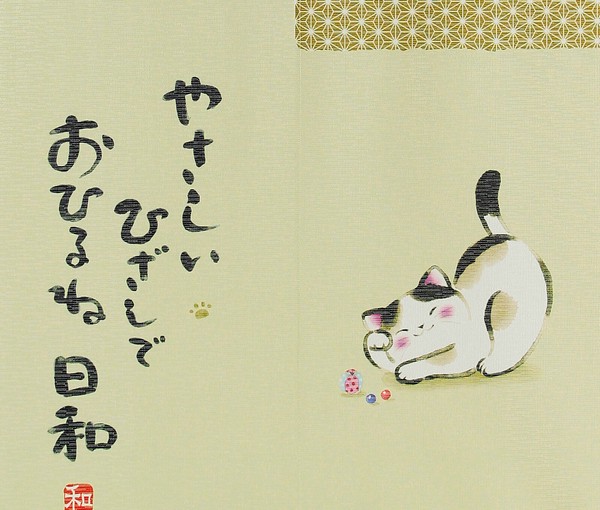 やさしい
ひざしで
おひるね
日和
和